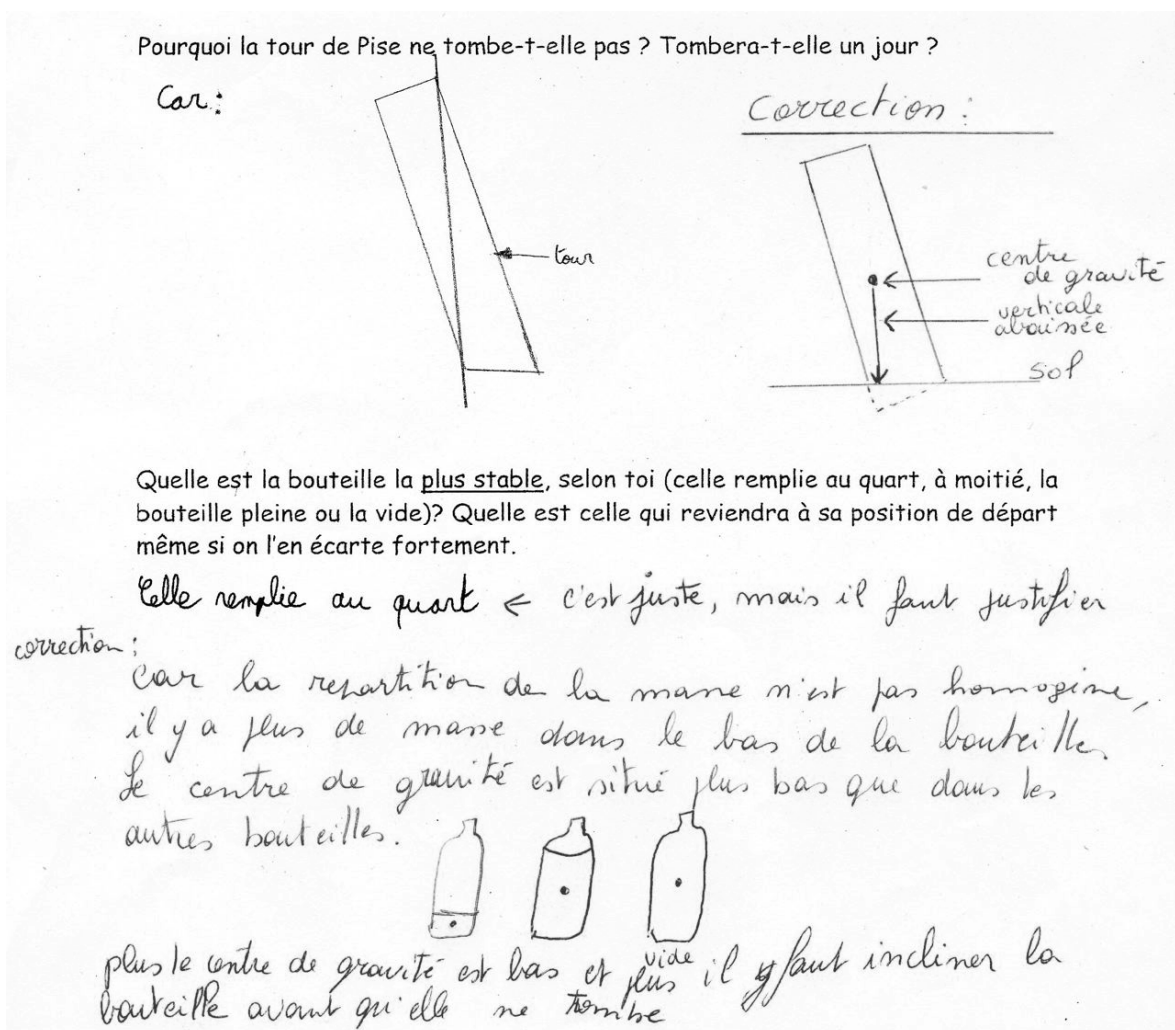 Pourquoi la tour de Pise ne tombe-t-elle pas ? Tombera-t-elle un jour ?
Car :
tour
Correction :
centre
de gravité
verticale
abaissée
sol
Quelle est la bouteille la plus stable, selon toi (celle remplie au quart, à moitié, la
bouteille pleine ou la vide)? Quelle est celle qui reviendra à sa position de départ
même si on l'en écarte fortement.
Celle remplie au quart ← c'est juste, mais il faut justifier
correction :
car la repartition de la masse n'est pas homogène,
il y a plus de masse dans le bas de la bouteille.
Le centre de gravité est situé plus bas que dans les
autres bouteilles.
vide
plus le centre de gravité est bas et plus il faut incliner la
bouteille avant qu'elle ne tombe